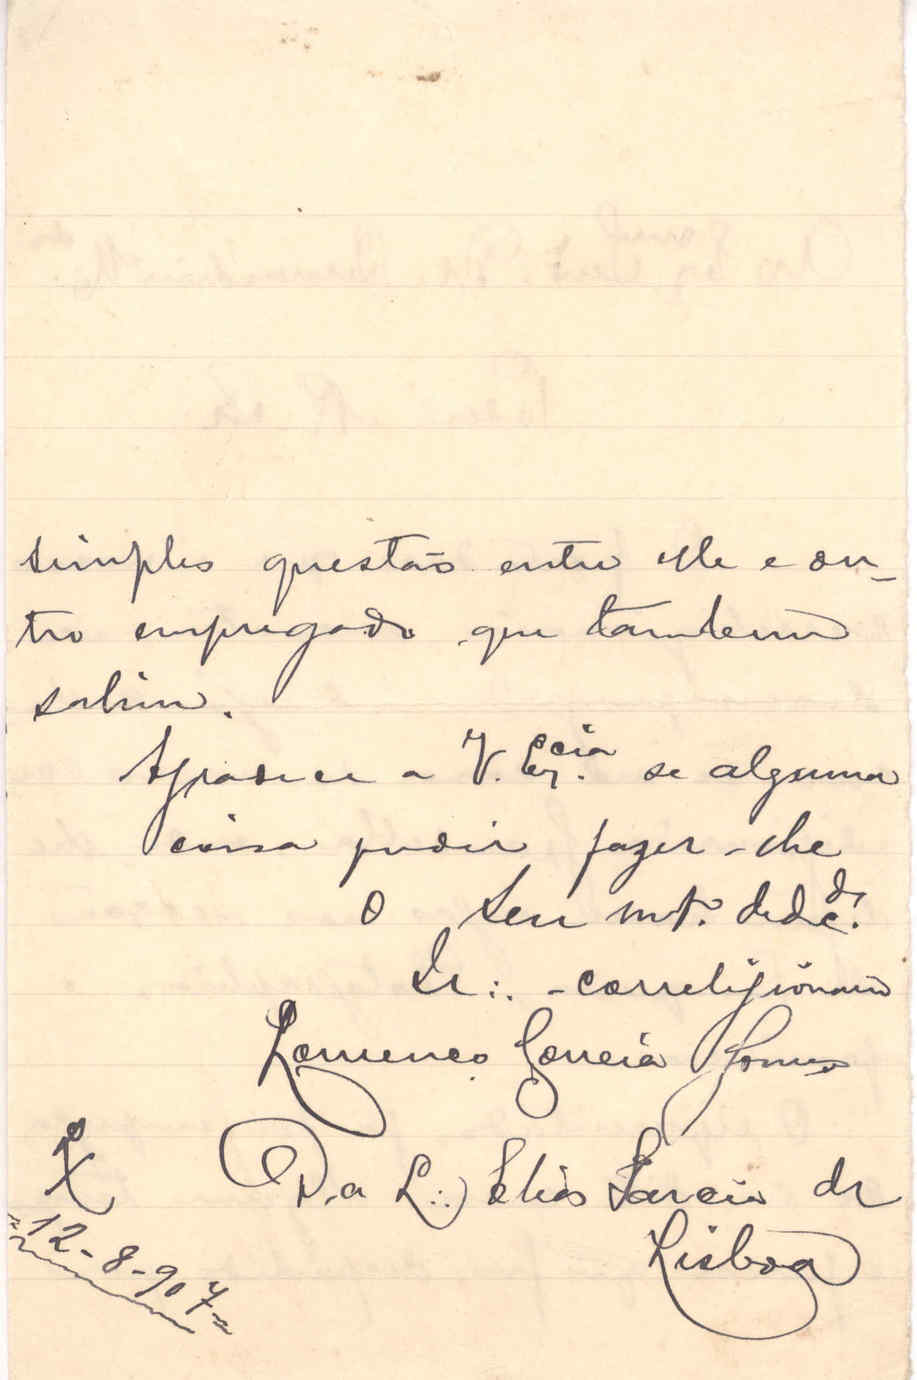 simples questão entre elle e ou-
tro empregado que tambem
sahiu.
Agradece a V. Ex.cia se alguma
coisa puder fazer-lhe
O Seu mt.º dedc.do
Ir∴ -correligionario
Lourenço Correia Gomes
D.a L∴ Elias Garcia de
Lisboa
Lx
12-8-907